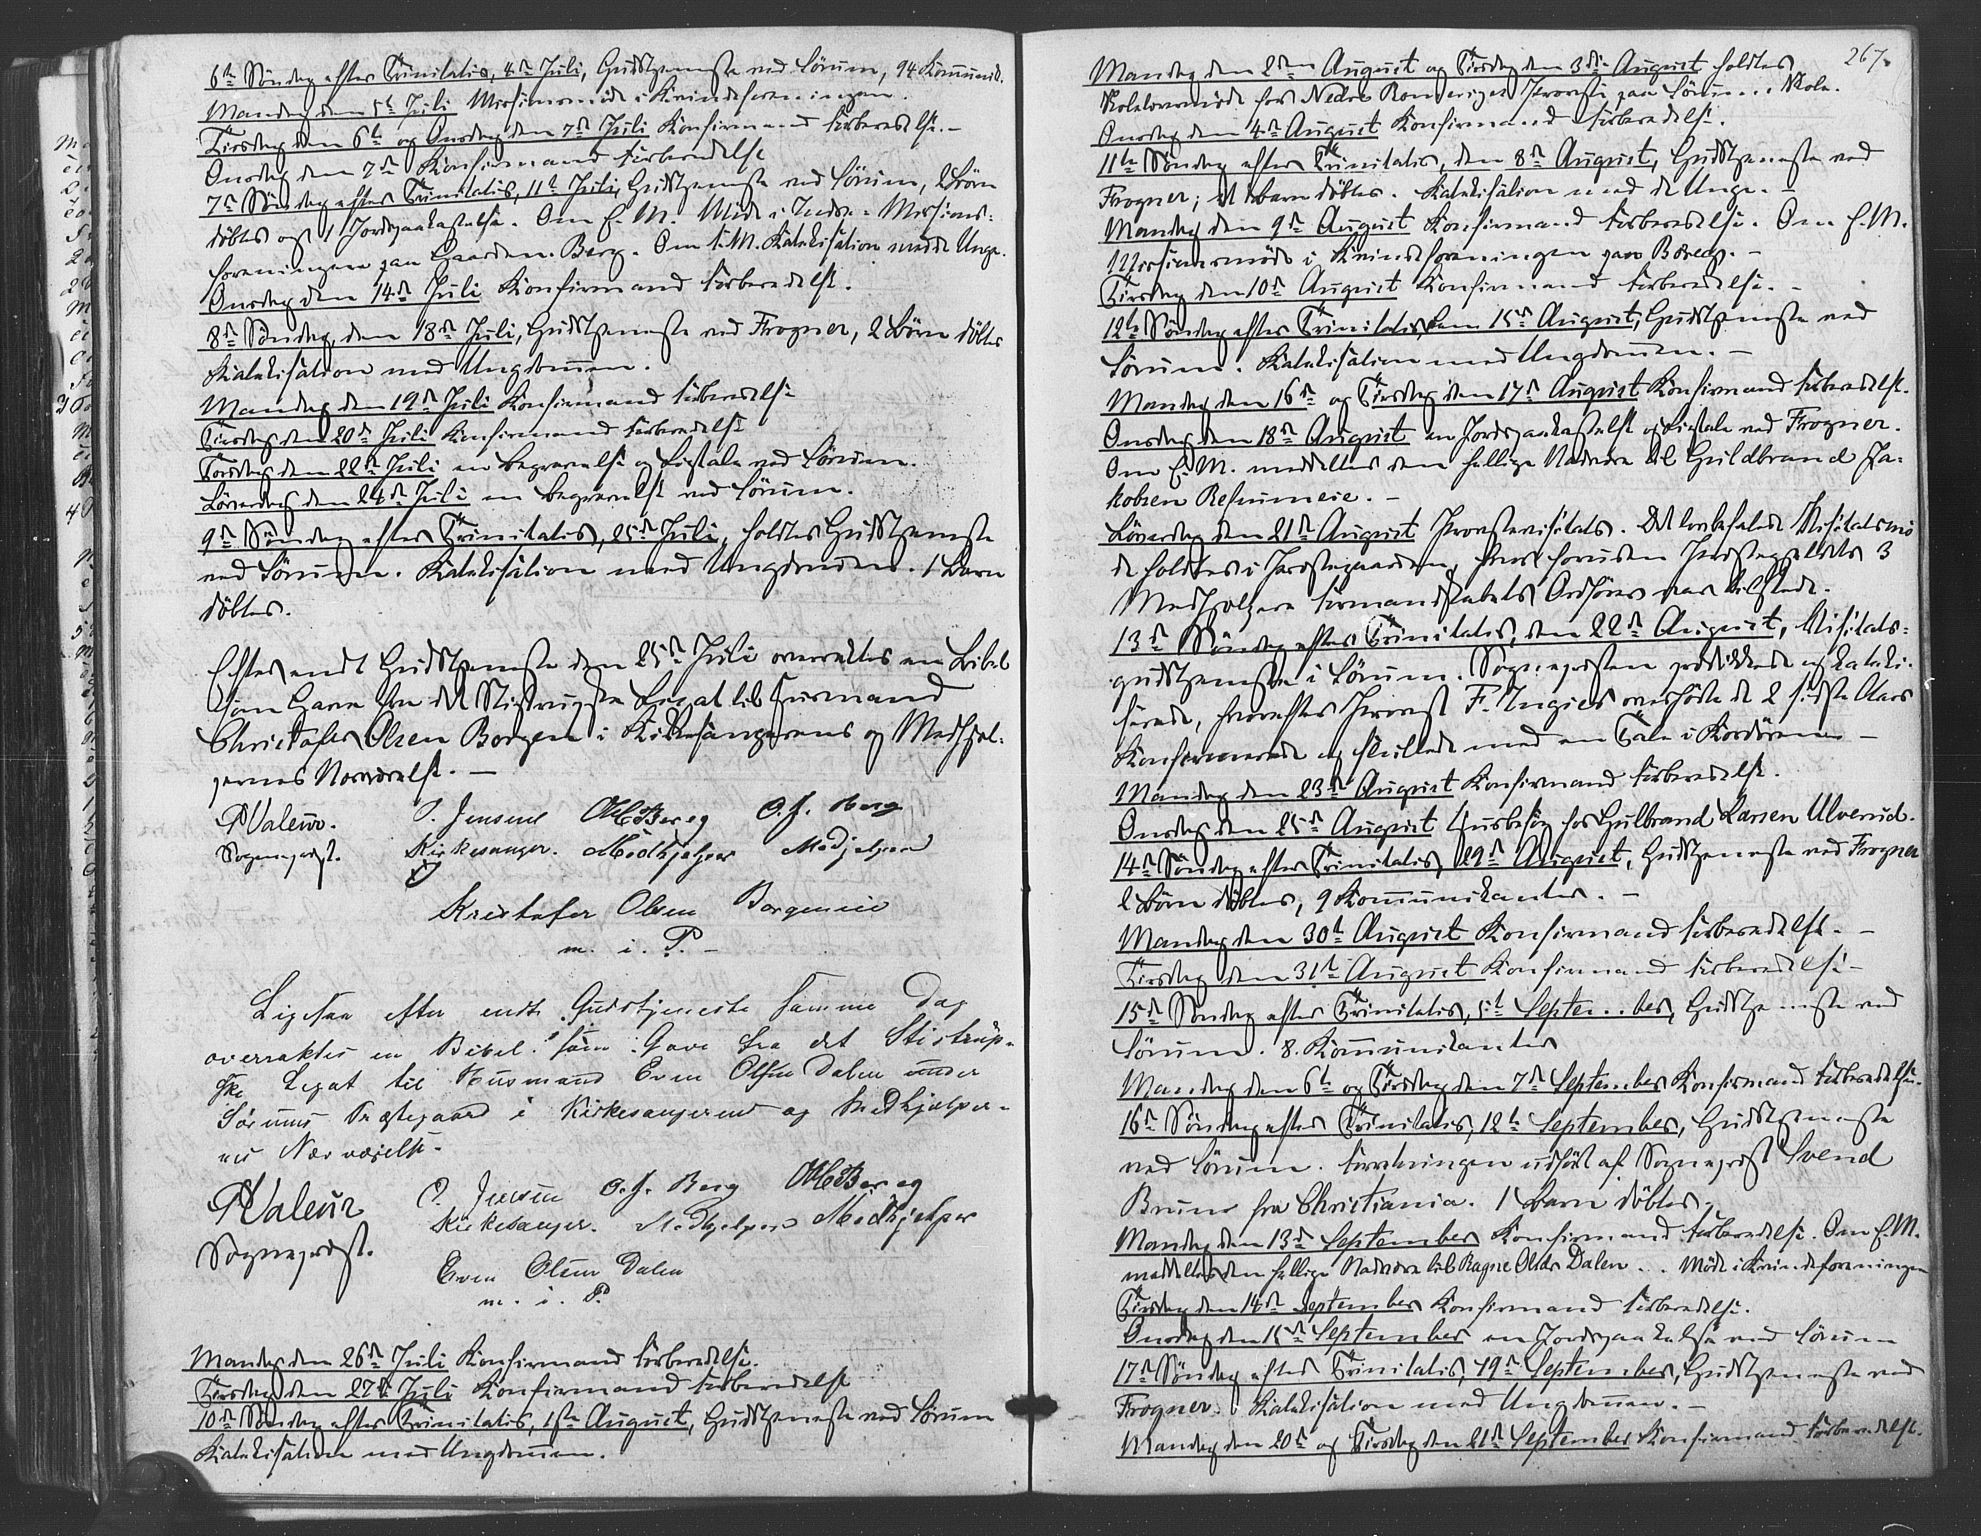 6te Søndag efter Trinitatis, 4de Juli, Gudstjeneste ved Sørum, 94 Kommunik.
Mandag den 5te Juli Missionsmøde i Kvindeforeningen.
Tirsdag den 6te og Onsdag den 7de Juli Konfirmand Forberedelse. —
Onsdag den 7de Konfirmand Forberedelse
7de Søndag efter Trinitatis, 11te Juli, Gudstjeneste ved Sørum, 2 Børn
døbtes og 1 Jordpaakastelse. Om E. M. Møde i Indre-Missions-
foreningen paa Gaarden Berg. Om F. M. Katekisation med de Unge.
Onsdag den 14de Juli Konfirmand Forberedelse.
8de Søndag, den 18de Juli, Gudstjeneste ved Frogner, 2 Børn døbtes
Katekisation med Ungdommen.
Mandag den 19de Juli Konfirmand Forberedelse
Tirsdag den 20de Juli Konfirmand Forberedelse
Torsdag den 22de Juli en Begravelse og Ligtale ved Sørum.
Lørverdag den 24de Juli en Begravelse ved Sørum.
9de Søndag efter Trinitatis, 25de Juli, holdtes Gudstjeneste
ved Sørum. Katekisation med Ungdommen. 1 Barn
døbtes.
Efter endt Gudstjeneste den 25de Juli overraktes en Bibel
som Gave fra det Stistrupske Legat til Husmand
Christofer Olsen Borgen i Kirkesangerens og Medhjæl-
pernes Nærværelse. —
PValeur. P. Jensen O. J. Berg
Sogneprest. Kirkesanger. Medhjelper Medjelper
Kristofer Olsen Borgeneie
m. i. P. —
Ligesaa efter endt Gudstjeneste samme Dag
overraktes en Bibel som Gave fra det Stistrup-
ske Legat til Husmand Even Olsen Dalen under
Sørums Præstegaard i Kirkesangerens og Medhjælper-
nes Nærværelse.
PValeur P. Jensen O. J. Berg
Sogneprest. Kirkesanger. Medhjelper Medhjelper
Even Olsen Dalen
m. i. P.
Mandag den 26de Juli Konfirmand Forberedelse.
Tirsdag den 27de Juli Konfirmand Forberedelse
10de Søndag efter Trinitatis, 1ste August, Gudstjeneste ved Sørum
Katekisation med Ungdommen.
267.
Mandag den 2den August og Tirsdag den 3die August holdtes
Skolelærermøde for Nedre Romeriges Provsti paa Sørum Skole.
Onsdag den 4de August Konfirmand Forberedelse.
11te Søndag efter Trinitatis, den 8de August, Gudstjeneste ved
Frogner; et Barn døbtes. Katekisation med de Unge. —
Mandag den 9de August Konfirmand Forberedelse. Om E. M.
Missionsmøde i Kvindeforeningen paa Børeg. —
Tirsdag den 10de August Konfirmand Forberedelse. —
12te Søndag efter Trinitatis, den 15de August, Gudstjeneste ved
Sørum. Katekisation med Ungdommen. —
Mandag den 16de og Tirsdag den 17de August Konfirmand Forberedelse.
Onsdag den 18de August en Jordpaakastelse og Ligtale ved Frogner.
Om E. M. meddeltes den hellige Nadvere til Guldbrand Ja-
kobsen Refsumeie. —
Løverdag den 21de August Provstevisitats. Det lovbefalede Visitatsmø
de holdtes i Præstegaarden, hvor foruden Prestegjeldets 3
Medhjelpere Formandskabets Ordfører var tilstede.
13de Søndag efter Trinitatis, den 22de August, Visitats-
gudstjeneste i Sørum. Sognepresten prædikede og kateki-
serede, hvorefter Provst F. Ingier overhørte de 2 sidste Aars
Konfirmerede og sluttede med en Tale i Kordøren —
Mandag den 23de August Konfirmand Forberedelse.
Onsdag den 25de August Husbesøg hos Gulbrand Larsen Ulverud.
14de Søndag efter Trinitatis, 29de August, Gudstjeneste ved Frogner
2 Børn døbtes, 9 Kommunikanter. —
Mandag den 30te August Konfirmand Forberedelse. —
Tirsdag den 31te August Konfirmand Forberedelse —
15de Søndag efter Trinitatis, 5te September, Gudstjeneste ved
Sørum. 8. Kommunikanter
Mandag den 6te og Tirsdag den 7de September Konfirmand Forberedelse.
16de Søndag efter Trinitatis, 12te September, Gudstjeneste
ved Sørum. Forretningen udført af Sogneprest Svend
Bruun fra Christiania. 1 Barn døbtes.
Mandag den 13de September Konfirmand Forberedelse. Om E. M.
meddeltes den hellige Nadvere til Ragne Olsdr Dalen. Møde i Kvindeforeningen
Tirsdag den 14de September Konfirmand Forberedelse.
Onsdag den 15de September en Jordpaakastelse ved Sørum
17de Søndag efter Trinitatis, 19de September, Gudstjeneste ved
Frogner. Katekisation med Ungdommen. —
Mandag den 20de og Tirsdag den 21de September Konfirmand Forberedelse.